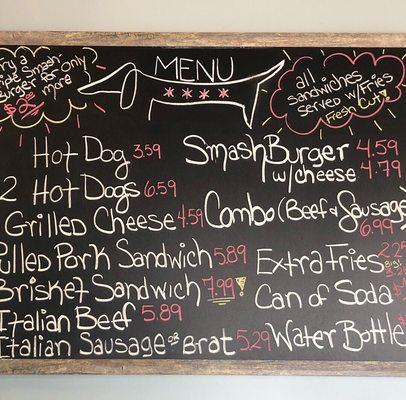 MENU
Only
more
$2.00
all
Sandwiches
served w/Fries
Fresh Cut!
Hot Dog 3.59
2 Hot Dogs 6.59
Grilled Cheese 4.59
Pulled Pork Sandwich 5.89
Brisket Sandwich 7.99!
Italian Beef 5.89
Italian Sausage or Brat 5.29
SmashBurger 4.59
w/cheese 4.79
Combo (Beef & Sausage)
6.99
Extra Fries
Can of Soda
Water Bottle